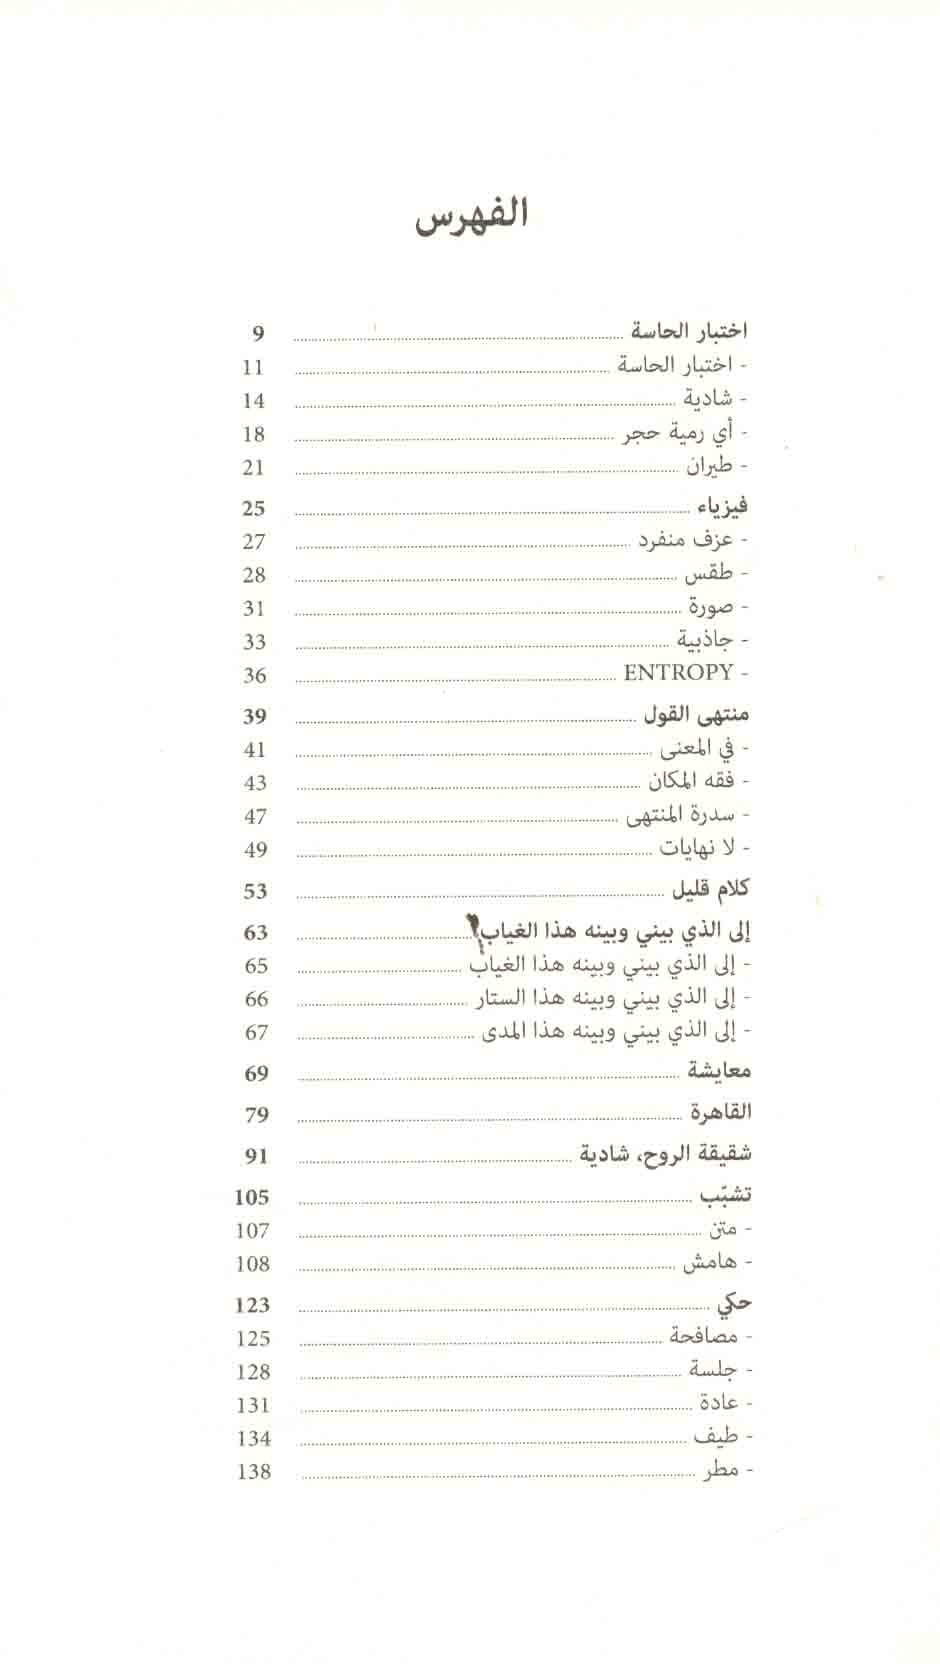 الفهرس
اختبار الحاسة ........ 9
- اختبار الحاسة ........ 11
- شادية ........ 14
- أي رمية حجر ........ 18
- طيران ........ 21
فيزياء ........ 25
- عزف منفرد ........ 27
- طقس ........ 28
- صورة ........ 31
- جاذبية ........ 33
- ENTROPY ........ 36
منتهى القول ........ 39
- في المعنى ........ 41
- فقه المكان ........ 43
- سدرة المنتهى ........ 47
- لا نهايات ........ 49
كلام قليل ........ 53
إلى الذي بيني وبينه هذا الغياب ........ 63
- إلى الذي بيني وبينه هذا الغياب ........ 65
- إلى الذي بيني وبينه هذا الستار ........ 66
- إلى الذي بيني وبينه هذا المدى ........ 67
معايشة ........ 69
القاهرة ........ 79
شقيقة الروح، شادية ........ 91
تشبّب ........ 105
- متن ........ 107
- هامش ........ 108
حكي ........ 123
- مصافحة ........ 125
- جلسة ........ 128
- عادة ........ 131
- طيف ........ 134
- مطر ........ 138